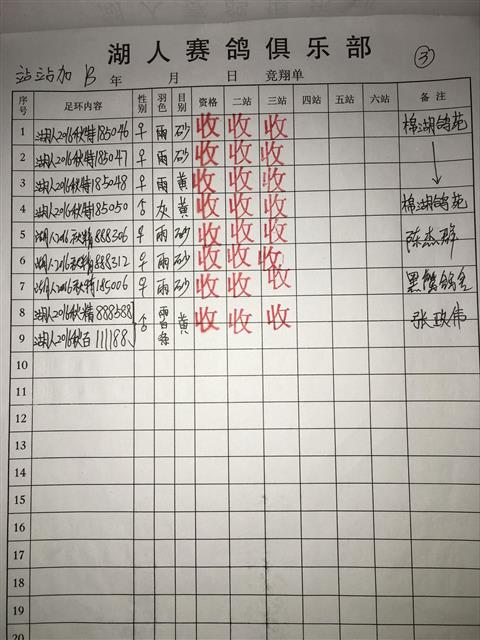 湖人赛鸽俱乐部
③
站站加 B 年 月 日 竞翔单
序号 足环内容 性别 羽色 目别 资格 二站 三站 四站 五站 六站 备注
1 湖人2016秋特185046 早 雨 砂 收 收 收 棉湖鸽苑
2 湖人2016秋特185047 早 雨 砂 收 收 收
3 湖人2016秋特185048 早 雨 黄 收 收 收
4 湖人2016秋特185050 含 灰 黄 收 收 收 棉湖鸽苑
5 湖人2016秋精888306 早 雨 砂 收 收 收 陈杰群
6 湖人2016秋精888312 早 雨 砂 收 收 收
7 湖人2016秋特185006 早 雨 砂 收 收 收
8 湖人2016秋精888588 含 雨白条 黄 收 收 收 张政伟
9 湖人2016秋百111188
10
11
12
13
14
15
16
17
18
19
20